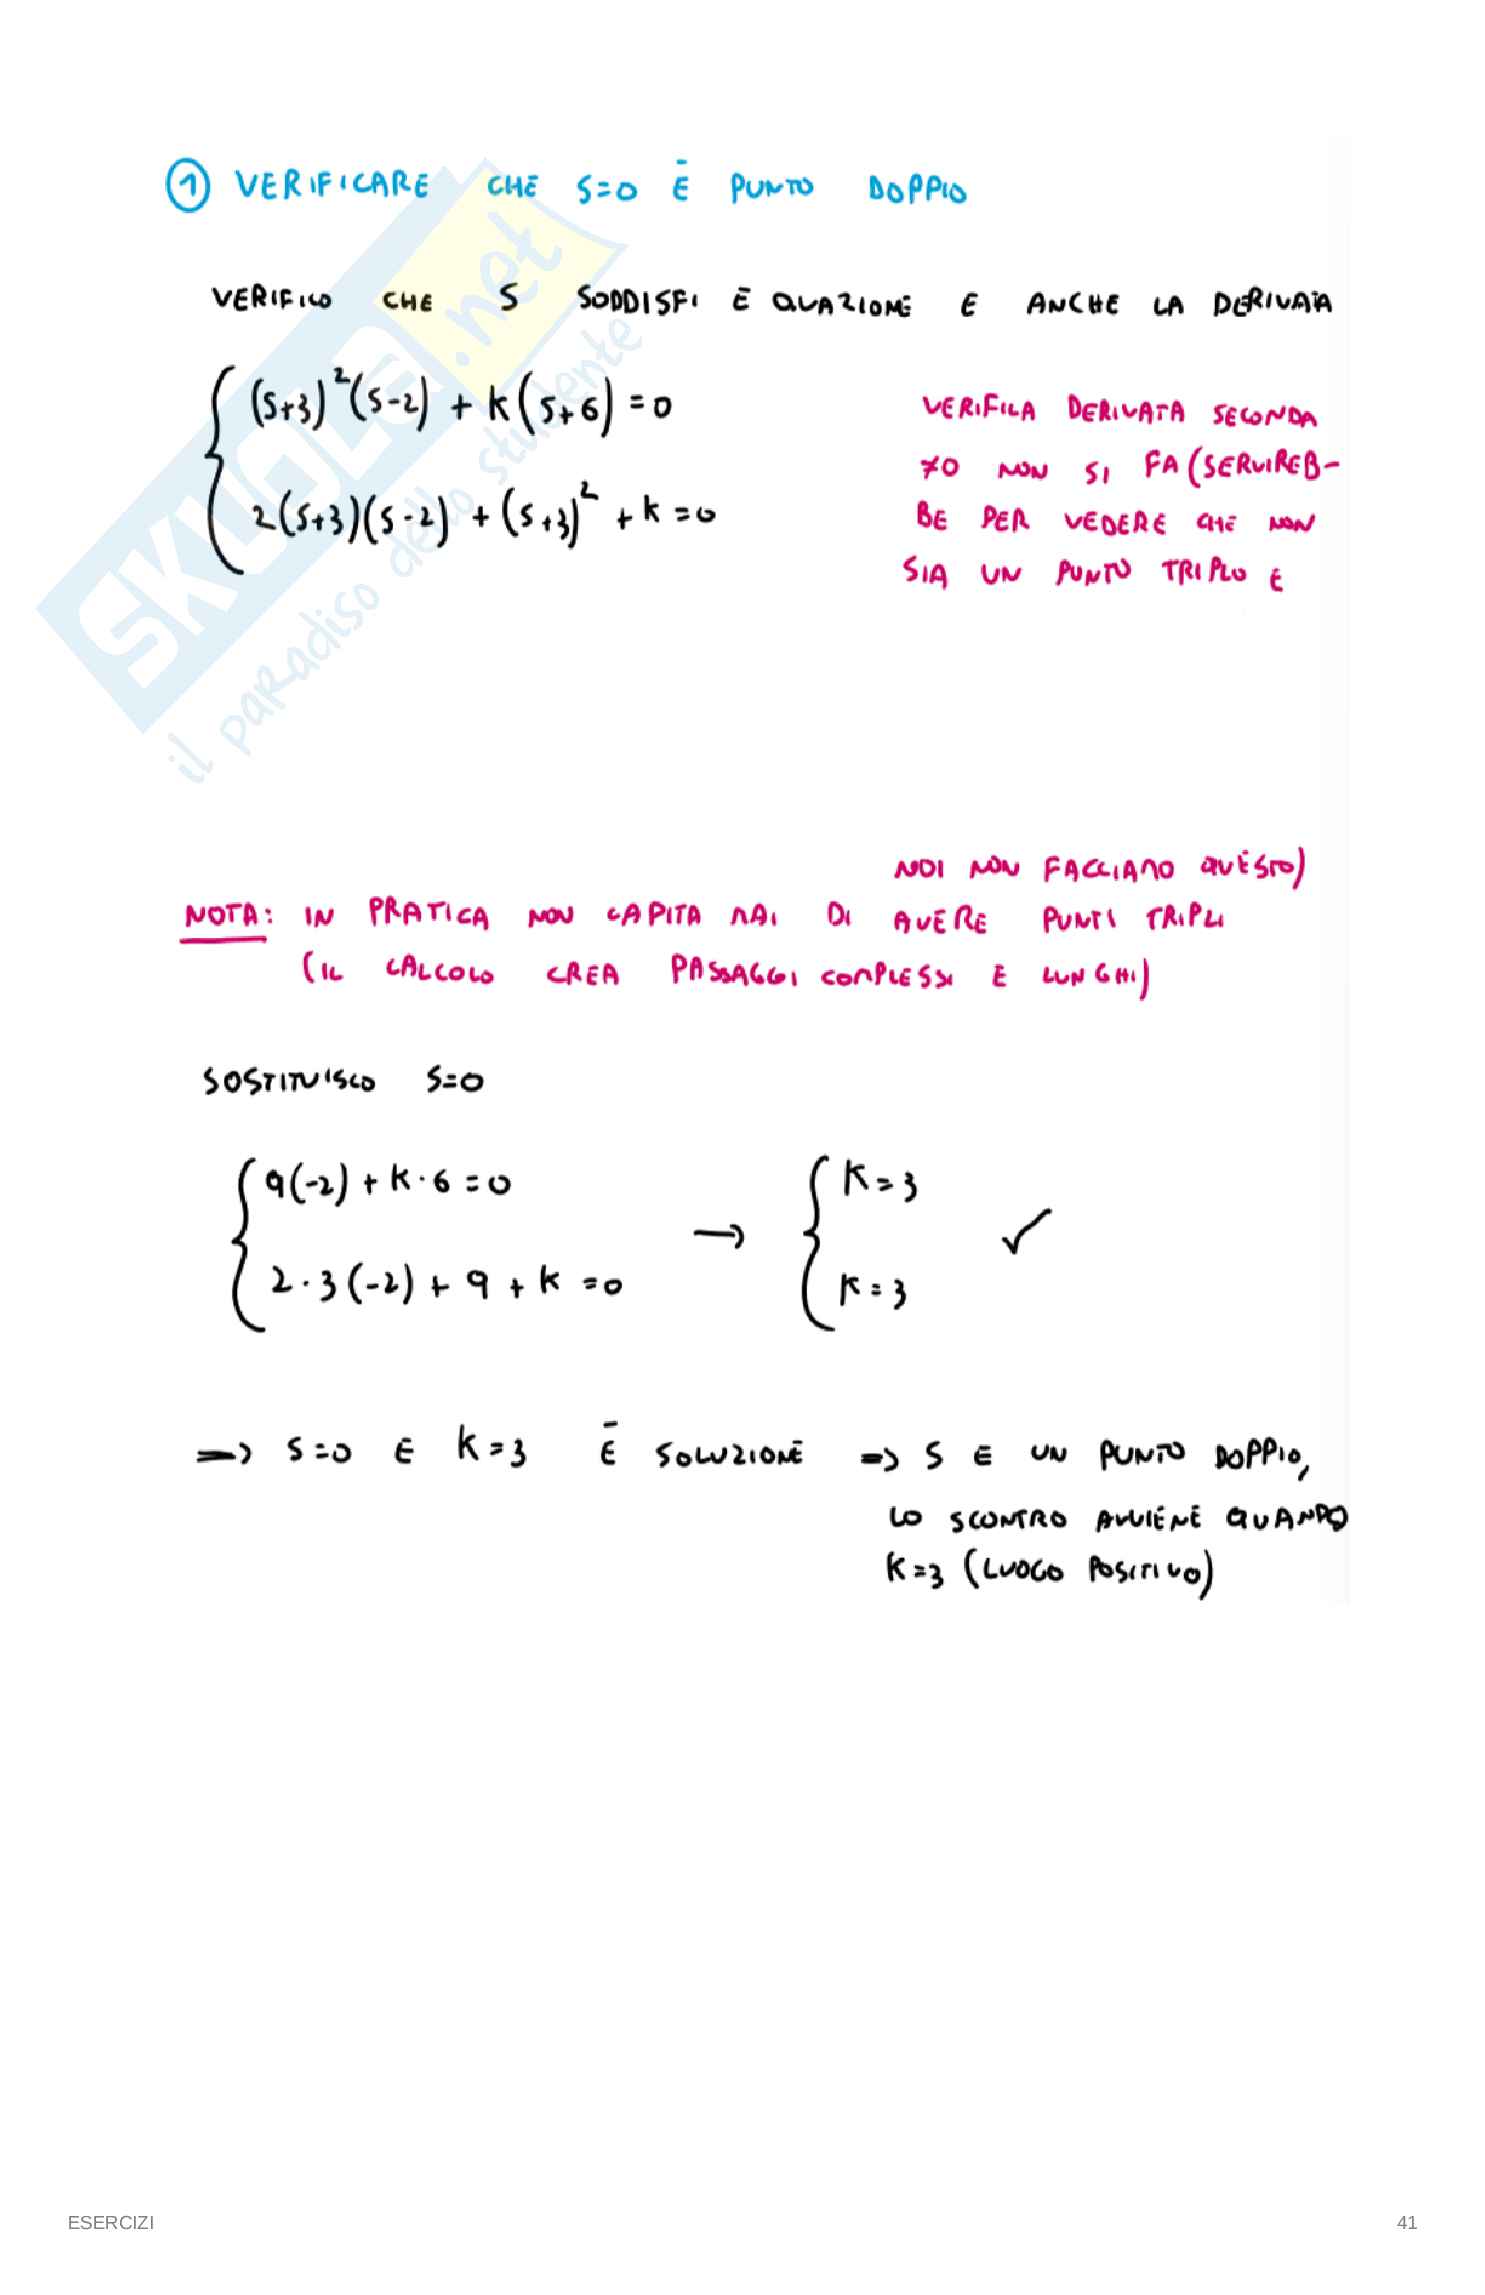 ① VERIFICARE CHE S=0 È PUNTO DOPPIO
VERIFICO CHE S SODDISFI EQUAZIONE E ANCHE LA DERIVATA
(S+3)²(S-2) + K(S+6) = 0
2(S+3)(S-2) + (S+3)² + K = 0
VERIFICA DERIVATA SECONDA
≠0 NON SI FA (SERVIREB-
BE PER VEDERE CHE NON
SIA UN PUNTO TRIPLO E
NOI NON FACCIAMO QUESTO)
NOTA: IN PRATICA NON CAPITA MAI DI AVERE PUNTI TRIPLI
(IL CALCOLO CREA PASSAGGI COMPLESSI E LUNGHI)
SOSTITUISCO S=0
9(-2) + K · 6 = 0
2 · 3(-2) + 9 + K = 0
→
K = 3
K = 3
✓
=> S=0 E K=3 È SOLUZIONE => S E UN PUNTO DOPPIO,
LO SCONTRO AVVIENE QUANDO
K=3 (LUOGO POSITIVO)
SKUOLA.net
il paradiso dello studente
ESERCIZI
41